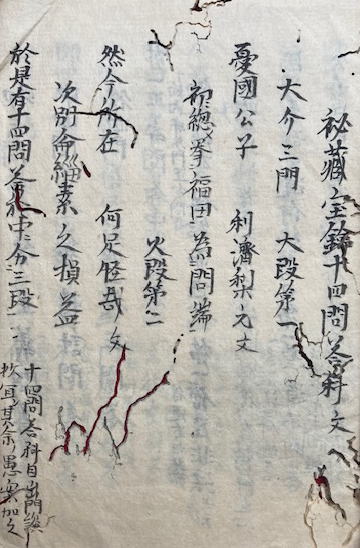 秘藏宝鈴十四問答科文
大介三門　大段第一
憂國公子　利濟梨元文
初總挙福田為問端
欠段第二
然今所在　何足恠哉文
次別命緇素之損益
於是有十四問答於中分三段
十四問答科目出門
攷耳其余愚案加之